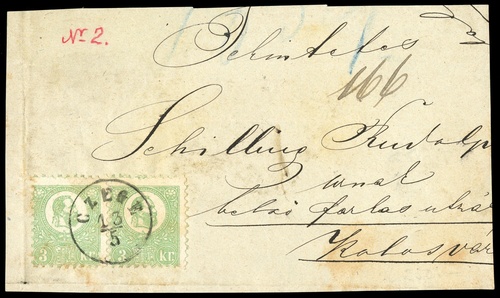 Nr 2.
Tekintetes
166
Schilling Rudolf
urnak
belső farkas utzá
Kolosvár
CZEGE
13
5
3 KR
3 KR